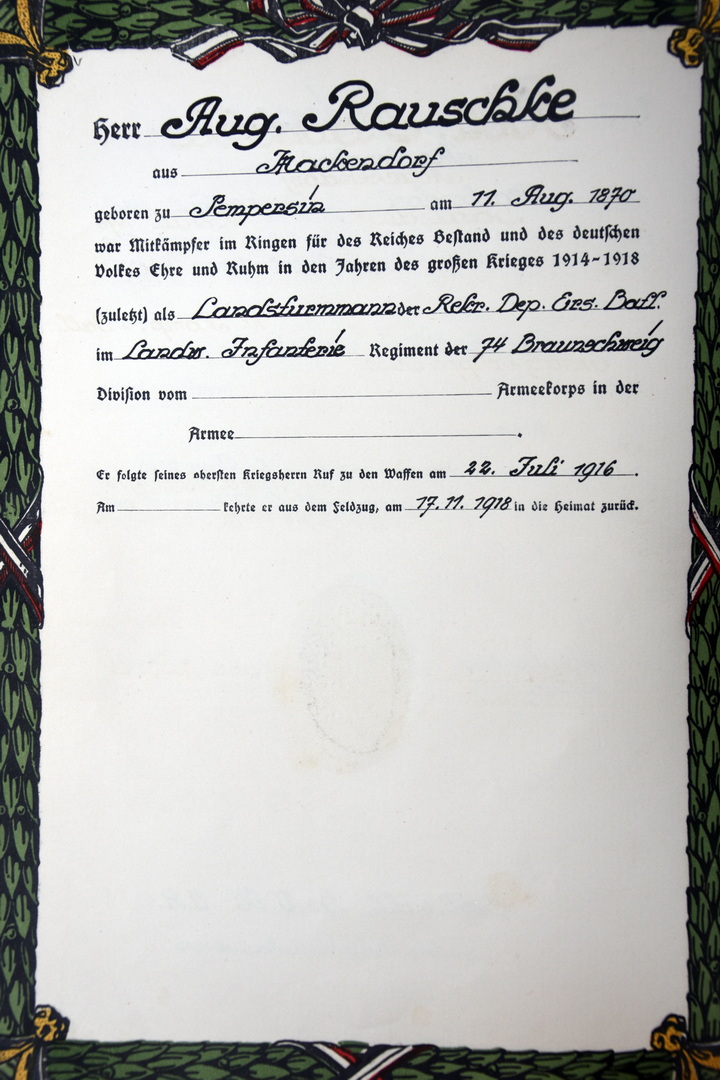 Herr Aug. Rauschke
aus Mackendorf
geboren zu Sempersin am 11. Aug. 1870
war Mitkämpfer im Ringen für des Reiches Bestand und des deutschen
Volkes Ehre und Ruhm in den Jahren des großen Krieges 1914-1918
(zuletzt) als Landsturmmann der Rekr. Dep. Ers. Batl.
im Landw. Infanterie Regiment der 74 Braunschweig
Division vom Armeekorps in der
Armee .
Er folgte seines obersten Kriegsherrn Ruf zu den Waffen am 22. Juli 1916 .
Am kehrte er aus dem Feldzug, am 17.11.1918 in die Heimat zurück.